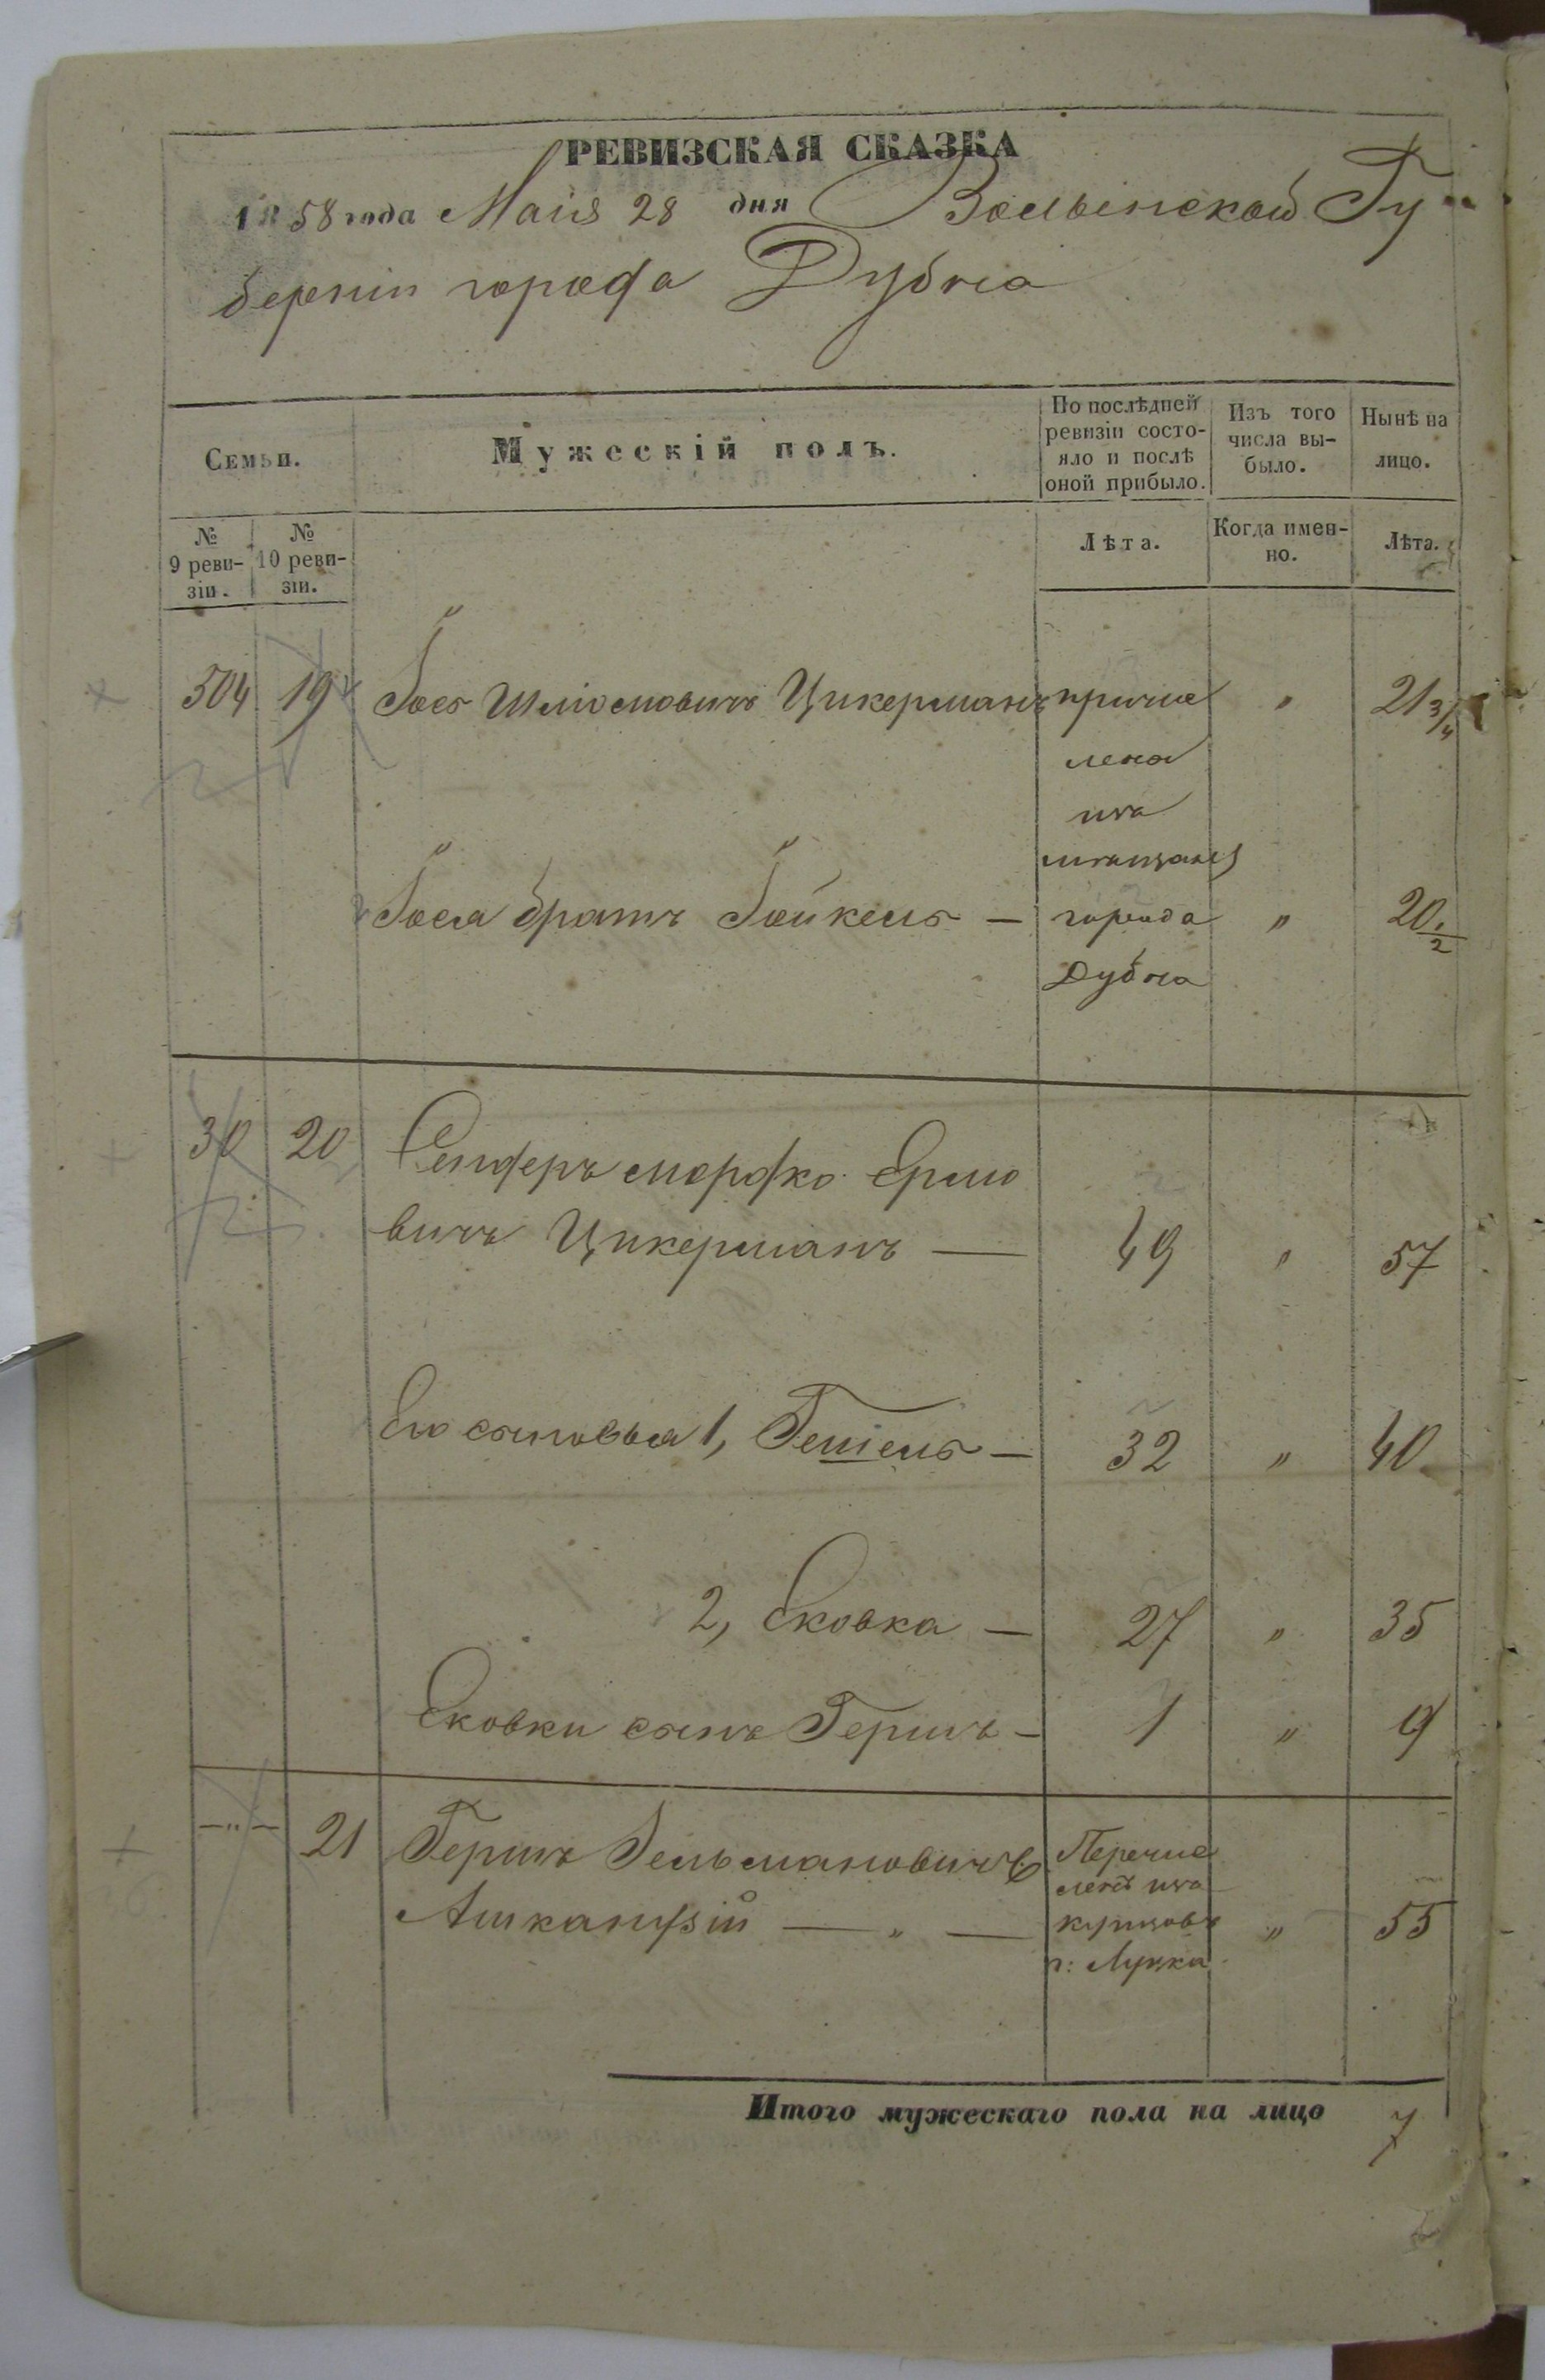 РЕВИЗСКАЯ СКАЗКА
1858 года Маія 28 дня Волынской Гу
берніи города Дубна
Семьи.
Мужескій полъ.
По послѣдней
ревизіи состо-
яло и послѣ
оной прибыло.
Изъ того
числа вы-
было.
Нынѣ на
лицо.
№
9 реви-
зіи.
№
10 реви-
зіи.
Лѣта.
Когда имен-
но.
Лѣта.
504 19 Іось Цикерманъ причис " 21 3/4
лена
изъ
мещанъ
Іося братъ Іойкель — города " 20 1/2
Дубна
30 20 Сендеръ мордко
вичъ Цикерманъ — 49 " 57
Его сыновья 1, Гешель — 32 " 40
2, Ековка — 27 " 35
Ековки сынъ Гершъ — 1 " 9
—"— 21 Гершъ Зельмановичъ Перечис
ленъ изъ
Ашканузій — " — купцовъ " 55
г: Луцка
Итого мужескаго пола на лицо 7